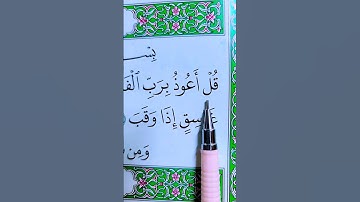 بِسْـ
قُلْ أَعُوذُ بِرَبِّ ٱلْفَ
غَاسِقٍ إِذَا وَقَبَ
وَمِن